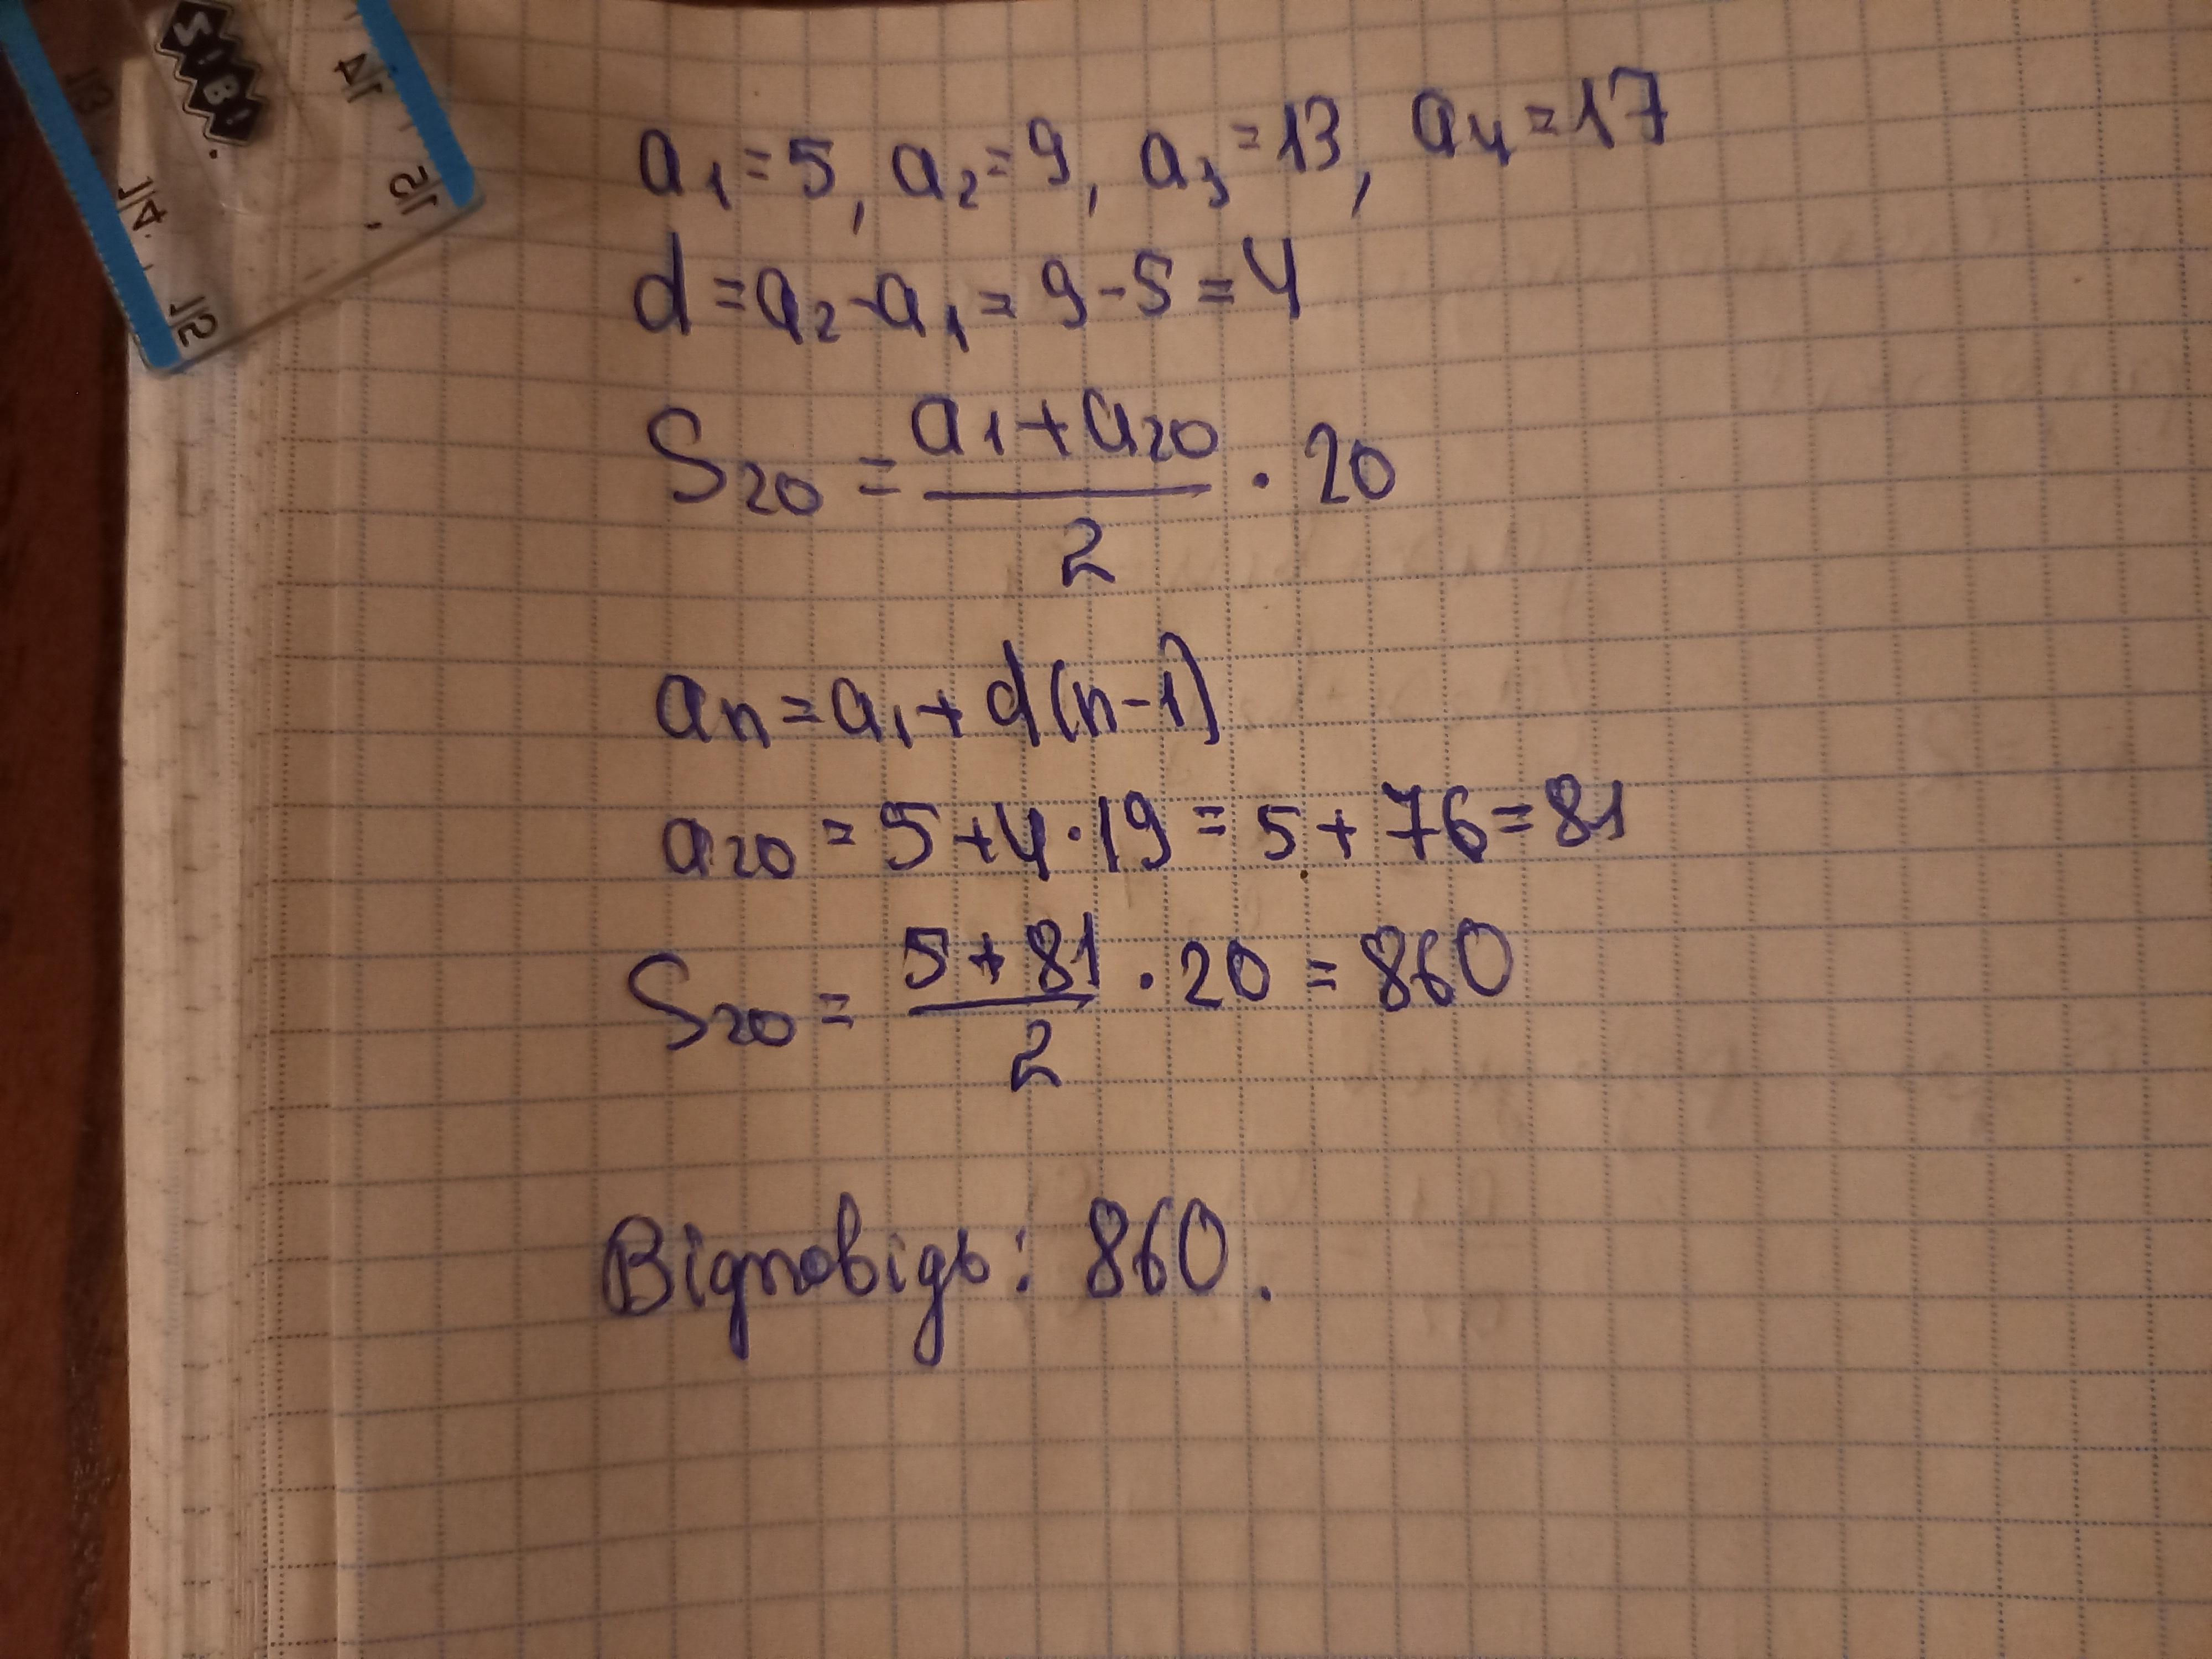 SIBI
13
14
12
14
15
a₁=5, a₂=9, a₃=13, a₄=17
d=a₂-a₁=9-5=4
S₂₀ = (a₁+a₂₀)/2 · 20
an=a₁+d(n-1)
a₂₀ = 5+4·19=5+76=81
S₂₀ = (5+81)/2 · 20 = 860
Відповідь: 860.